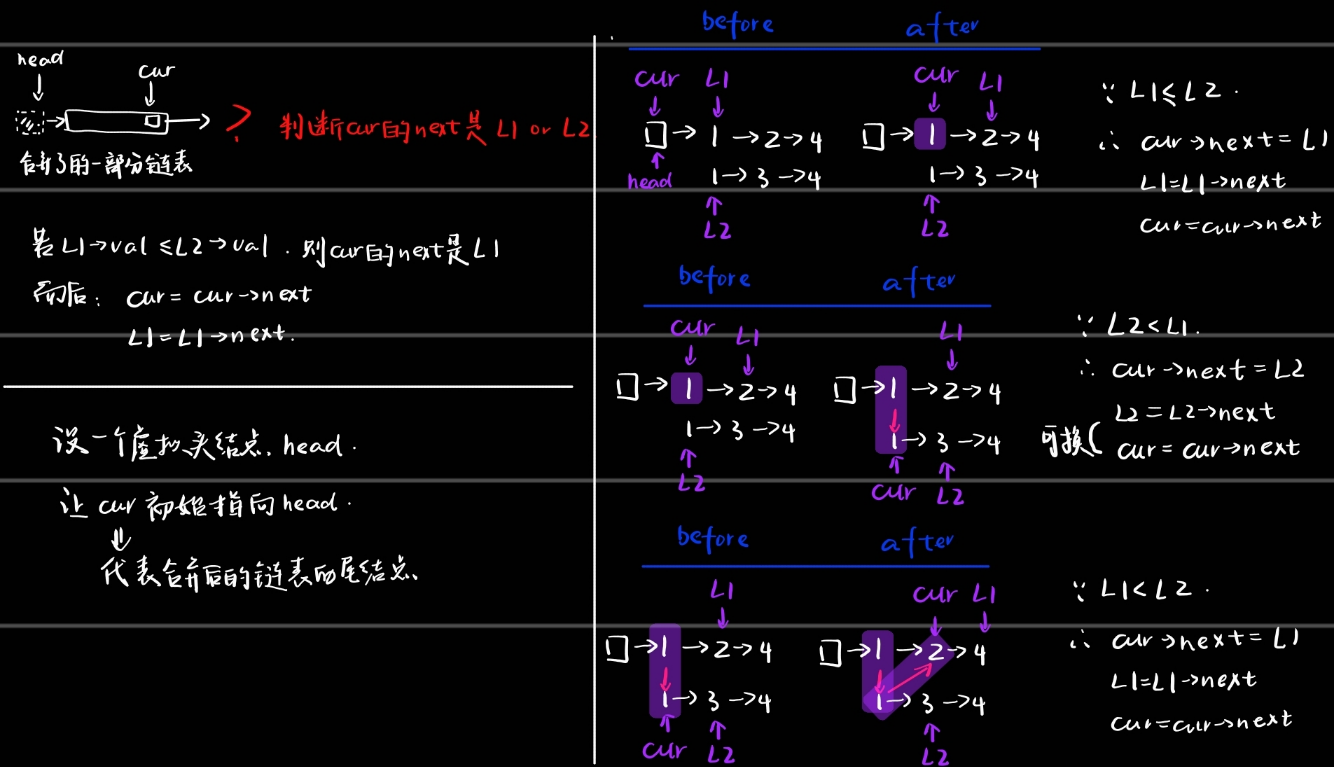 head
cur
? 判断cur的next是 L1 or L2
合并了的一部分链表
若 L1→val ≤ L2→val . 则cur的next是 L1
而后: cur = cur→next
L1 = L1→next.
设一个虚拟头结点. head .
让 cur 初始指向 head .
⇓
代表合并后的链表的尾结点.
before after
cur L1 cur L1
□ → 1 → 2 → 4 □ → 1 → 2 → 4
head 1 → 3 → 4 1 → 3 → 4
L2 L2
∵ L1 ≤ L2 .
∴ cur→next = L1
L1 = L1→next
cur = cur→next
before after
cur L1 L1
□ → 1 → 2 → 4 □ → 1 → 2 → 4
1 → 3 → 4 1 → 3 → 4
L2 cur L2
∵ L2 < L1.
∴ cur→next = L2
L2 = L2→next
可换( cur = cur→next
before after
L1 cur L1
□ → 1 → 2 → 4 □ → 1 → 2 → 4
1 → 3 → 4 1 → 3 → 4
cur L2 L2
∵ L1 < L2 .
∴ cur→next = L1
L1 = L1→next
cur = cur→next